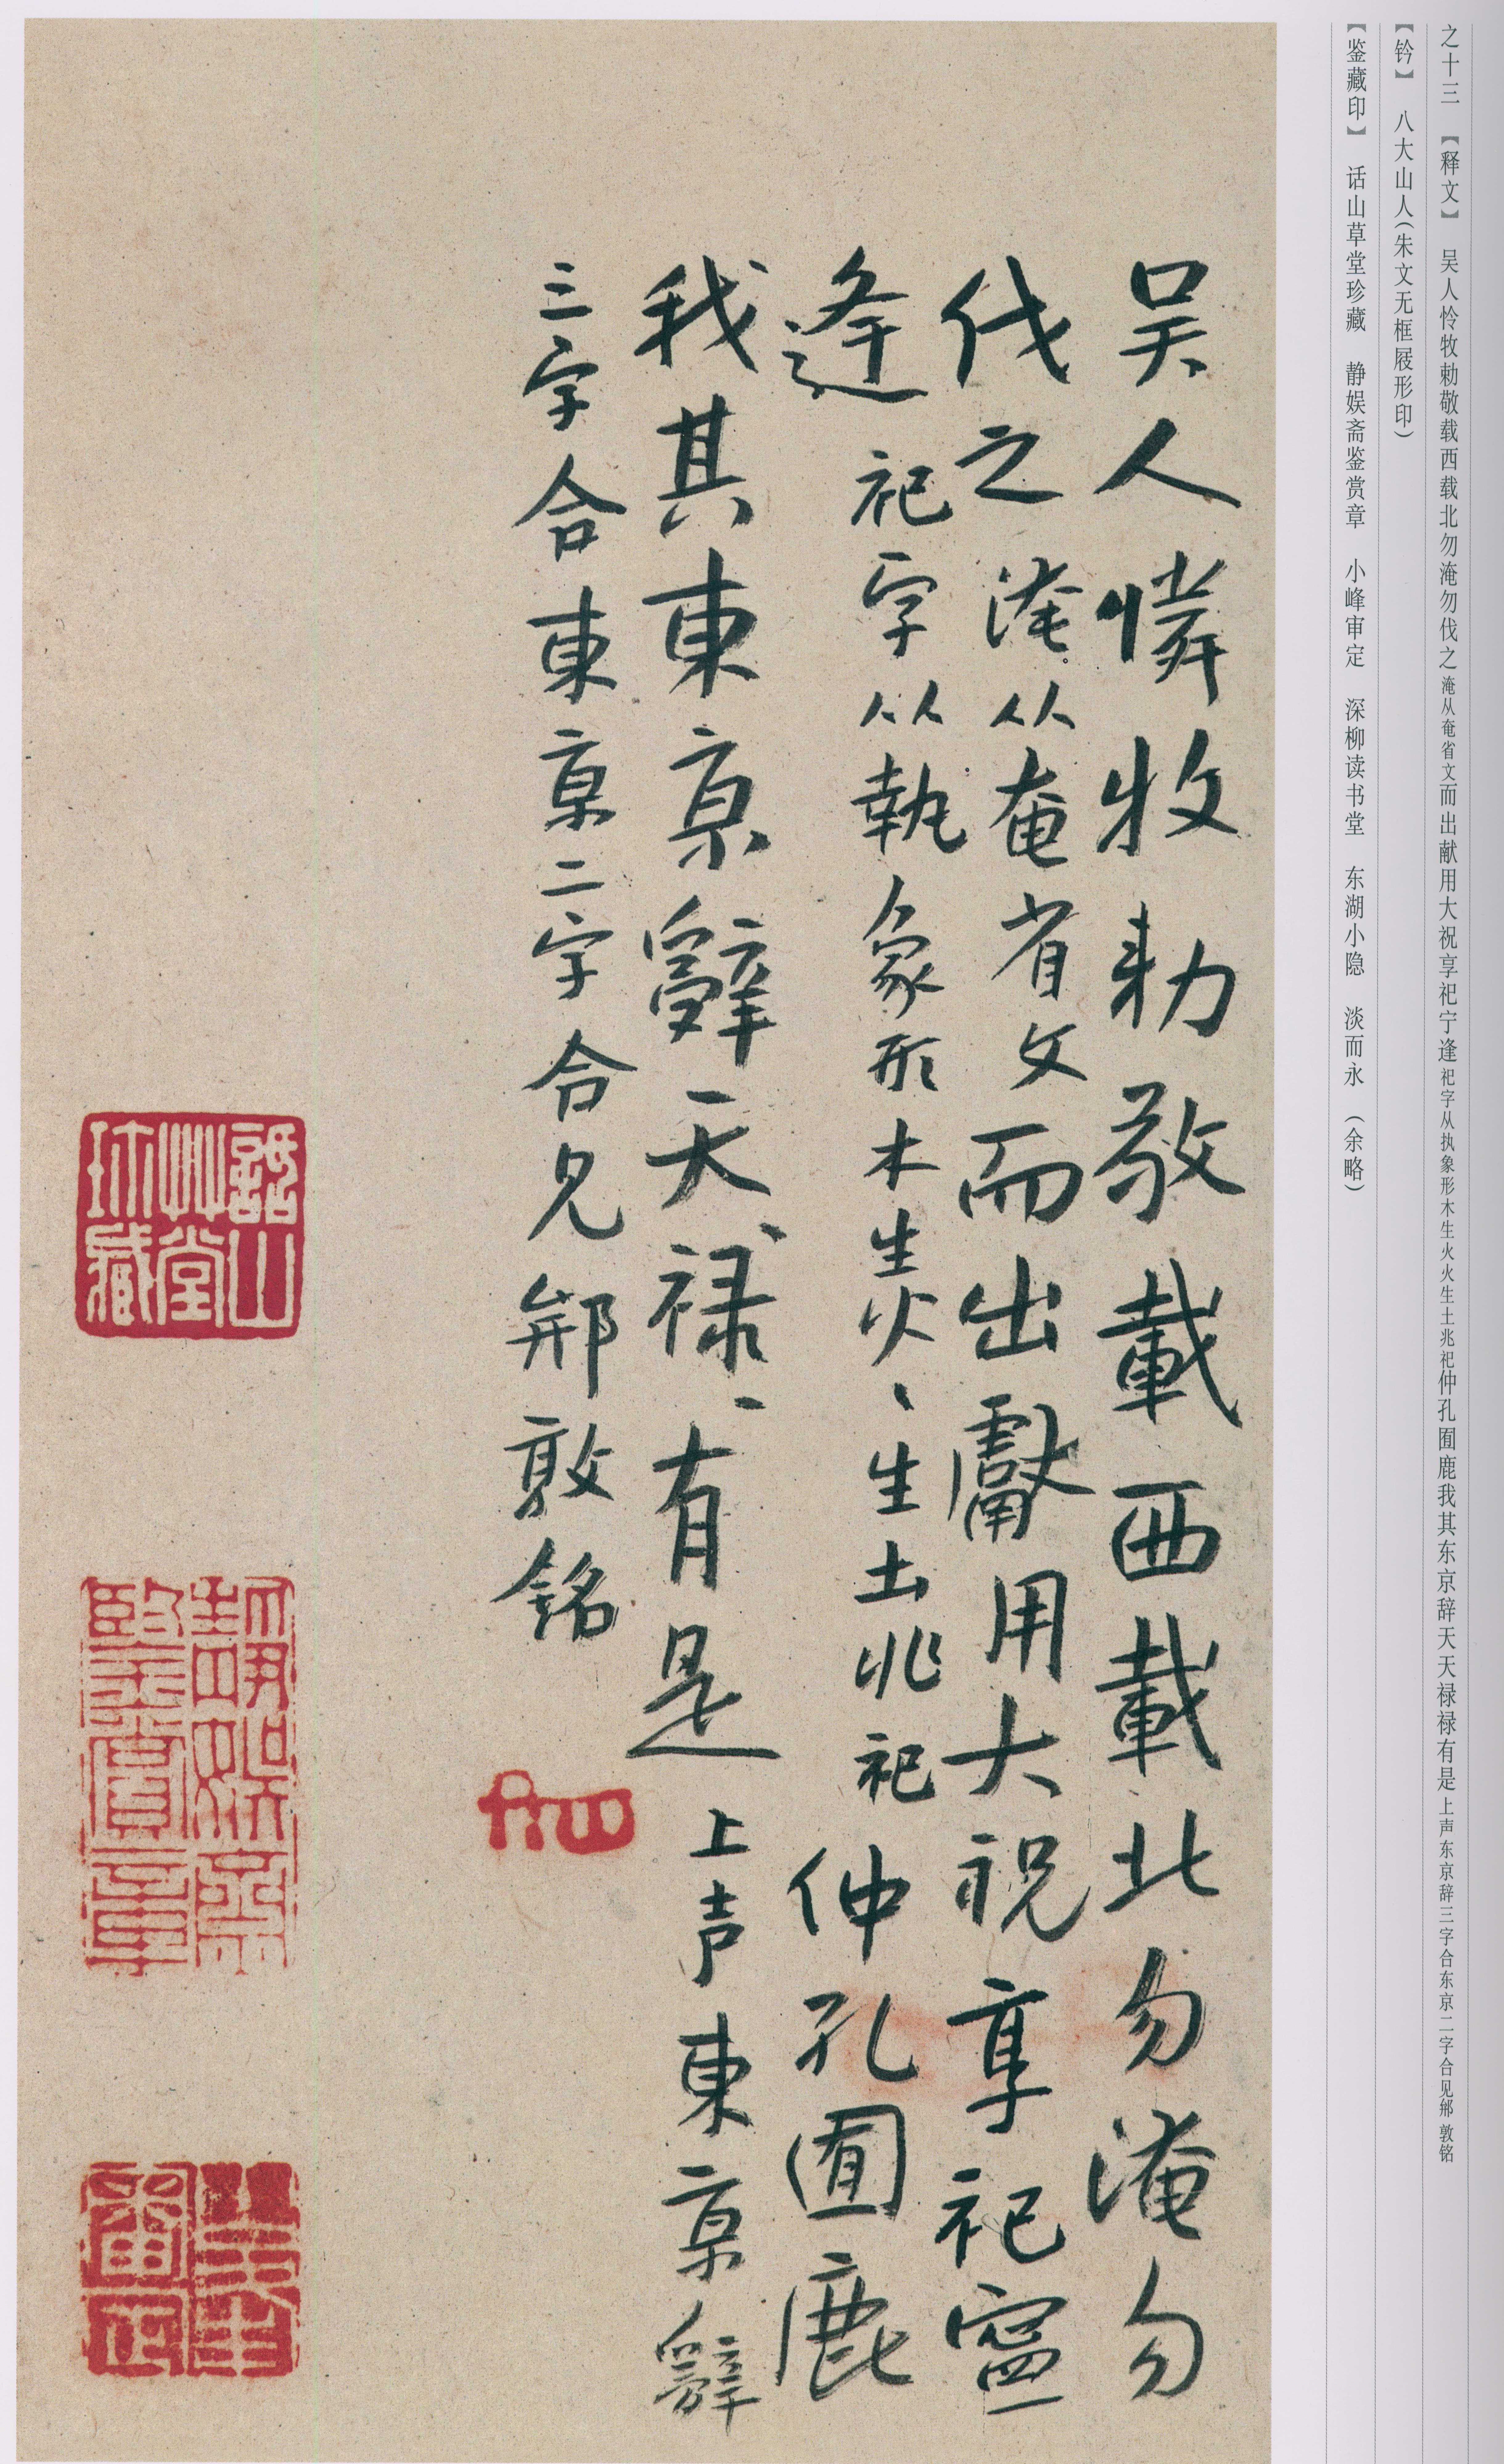 之十三 【释文】 吴人怜牧勅敬载西载北勿淹勿伐之淹从奄省文而出献用大祝享祀宁逢祀字从执象形木生火火生土兆祀仲孔囿鹿我其东京辞天天禄禄有是上声东京辞三字合东京二字合见邴敦铭
【钤】 八大山人（朱文无框屐形印）
【鉴藏印】 话山草堂珍藏 静娱斋鉴赏章 小峰审定 深柳读书堂 东湖小隐 淡而永 （余略）
吴人憐牧勅敬載西載北勿淹勿
伐之淹从奄省文而出獻用大祝享祀寍
逢祀字从執象形木生火、生土兆祀仲孔囿鹿
我其東京辭天、禄、有是上声東京辭
三字合東京二字合見邴敦銘
話山草堂珎藏
静娱斋鑒賞章